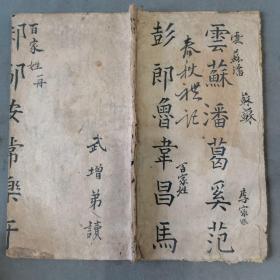 雲蘇潘
蘇蘇
雲蘇潘葛奚范
春秋禮記
百家姓
彭郎魯韋昌馬
武增弟讀
百家姓
安常樂于